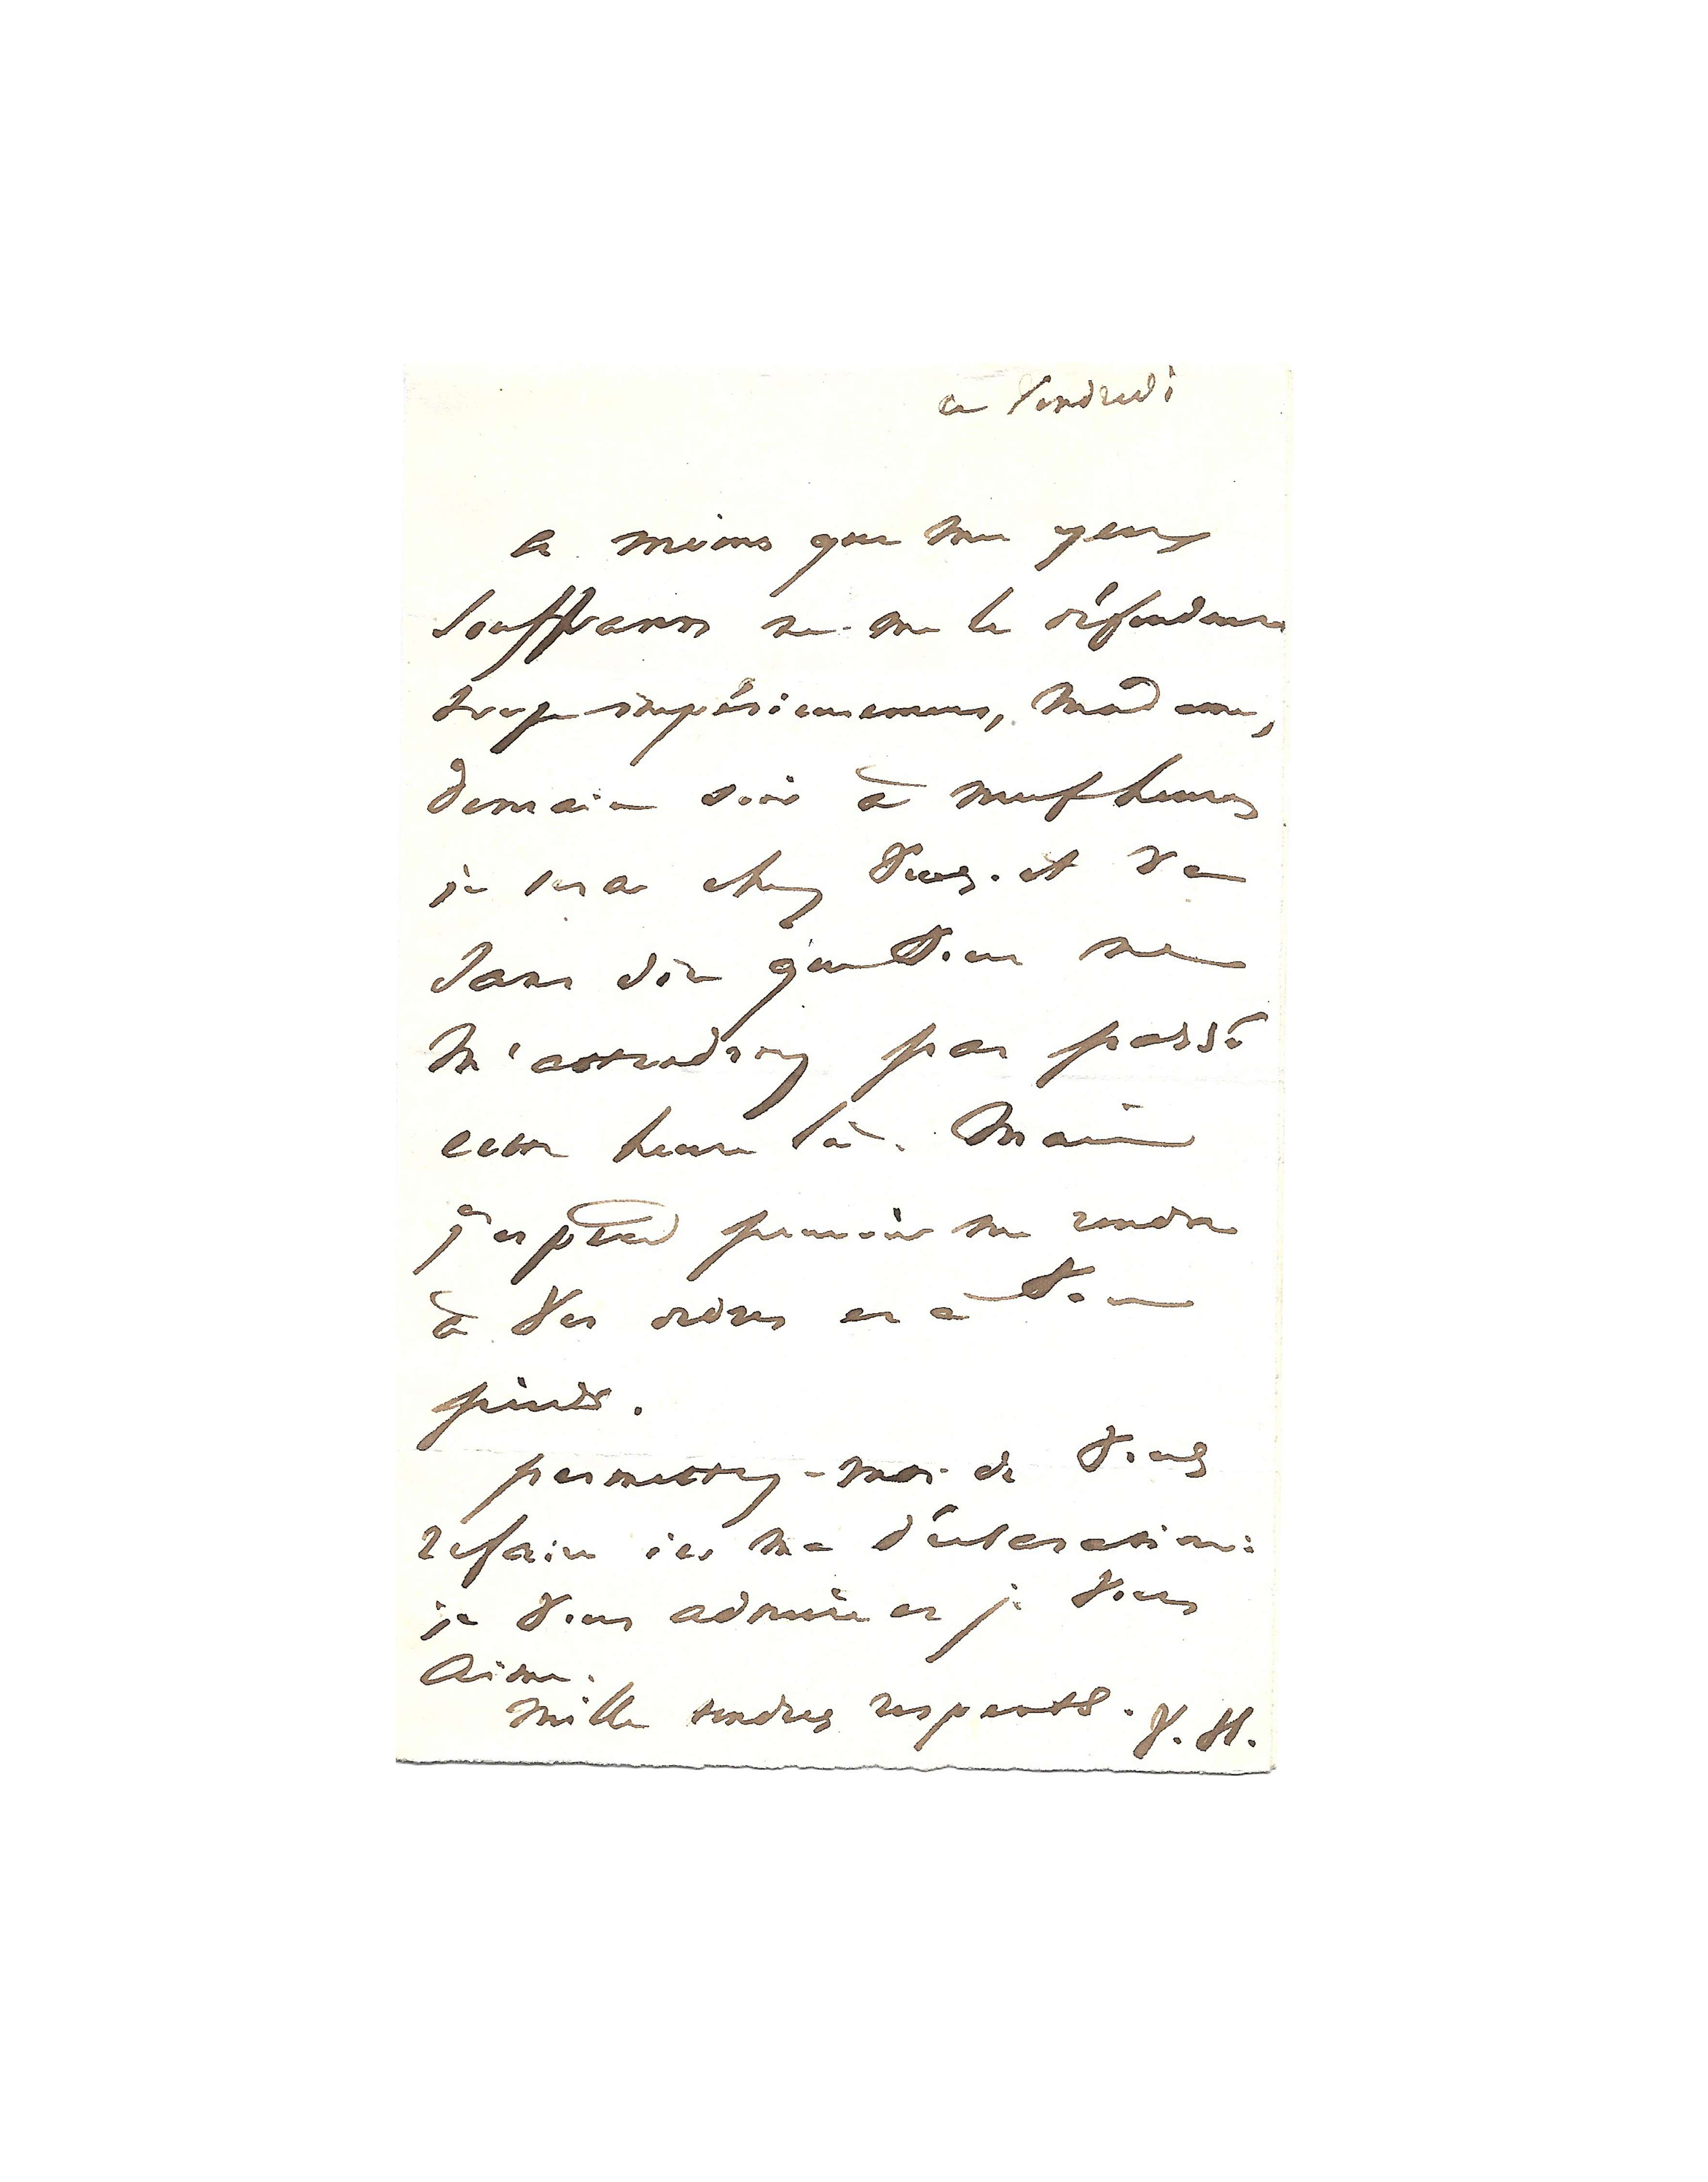 ce Vendredi
à moins que mes yeux
souffrants ne me le défendent
trop impérieusement, Madame,
demain soir à neuf heures
je serai chez vous. et va
sans dire que vous ne
m'attendrez pas passé
cette heure là. Mais
j'espère pouvoir me rendre
à vos ordres et à vos
pieds.
permettez-moi de vous
refaire ici ma déclaration:
je vous admire et je vous
aime.
mille tendres respects. V. H.